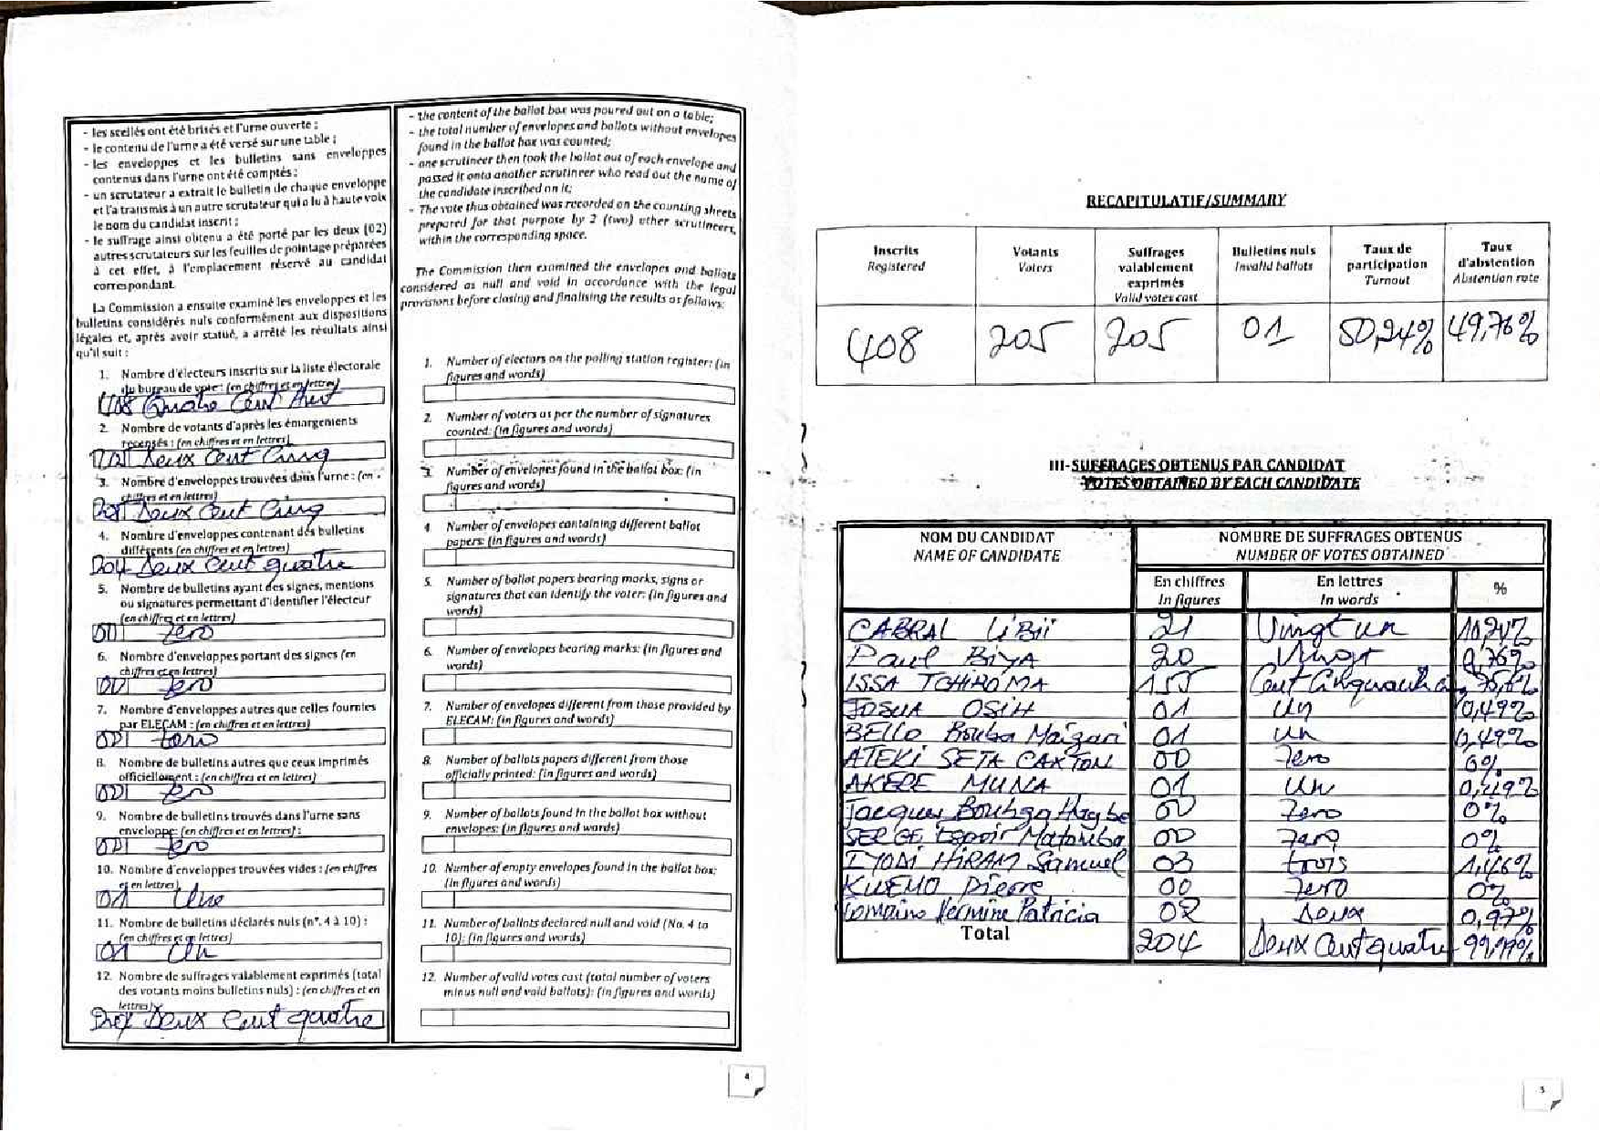 - les scellés ont été brisés et l'urne ouverte ;
- le contenu de l'urne a été versé sur une table ;
- les enveloppes et les bulletins sans enveloppes
contenus dans l'urne ont été comptés ;
- un scrutateur a extrait le bulletin de chaque enveloppe
et l'a transmis à un autre scrutateur qui a lu à haute voix
le nom du candidat inscrit ;
- le suffrage ainsi obtenu a été porté par les deux (02)
autres scrutateurs sur les feuilles de pointage préparées
à cet effet, à l'emplacement réservé au candidat
correspondant.
La Commission a ensuite examiné les enveloppes et les
bulletins considérés nuls conformément aux dispositions
légales et, après avoir statué, a arrêté les résultats ainsi
qu'il suit :
1. Nombre d'électeurs inscrits sur la liste électorale
du bureau de vote : (en chiffres et en lettres)
408 Quatre Cent Huit
2. Nombre de votants d'après les émargements
recensés : (en chiffres et en lettres)
205 Deux Cent Cinq
3. Nombre d'enveloppes trouvées dans l'urne : (en
chiffres et en lettres)
205 Deux Cent Cinq
4. Nombre d'enveloppes contenant des bulletins
différents (en chiffres et en lettres)
204 Deux Cent quatre
5. Nombre de bulletins ayant des signes, mentions
ou signatures permettant d'identifier l'électeur
(en chiffres et en lettres)
00 zero
6. Nombre d'enveloppes portant des signes (en
chiffres et en lettres)
00 zero
7. Nombre d'enveloppes autres que celles fournies
par ELECAM : (en chiffres et en lettres)
00 zero
8. Nombre de bulletins autres que ceux imprimés
officiellement : (en chiffres et en lettres)
00 zero
9. Nombre de bulletins trouvés dans l'urne sans
enveloppe : (en chiffres et en lettres) :
00 zero
10. Nombre d'enveloppes trouvées vides : (en chiffres
et en lettres)
01 Une
11. Nombre de bulletins déclarés nuls (n°. 4 à 10) :
(en chiffres et en lettres)
01 Un
12. Nombre de suffrages valablement exprimés (total
des votants moins bulletins nuls) : (en chiffres et en
lettres)
204 Deux Cent quatre
- the content of the ballot box was poured out on a table;
- the total number of envelopes and ballots without envelopes
found in the ballot box was counted;
- one scrutineer then took the ballot out of each envelope and
passed it onto another scrutineer who read out the name of
the candidate inscribed on it;
- The vote thus obtained was recorded on the counting sheets
prepared for that purpose by 2 (two) other scrutineers,
within the corresponding space.
The Commission then examined the envelopes and ballots
considered as null and void in accordance with the legal
provisions before closing and finalising the results as follows:
1. Number of electors on the polling station register: (in
figures and words)
2. Number of voters as per the number of signatures
counted: (in figures and words)
3. Number of envelopes found in the ballot box: (in
figures and words)
4 Number of envelopes containing different ballot
papers: (in figures and words)
5. Number of ballot papers bearing marks, signs or
signatures that can identify the voter: (in figures and
words)
6. Number of envelopes bearing marks: (in figures and
words)
7. Number of envelopes different from those provided by
ELECAM: (in figures and words)
8. Number of ballots papers different from those
officially printed: (in figures and words)
9. Number of ballots found in the ballot box without
envelopes: (in figures and words)
10. Number of empty envelopes found in the ballot box:
(in figures and words)
11. Number of ballots declared null and void (No. 4 to
10): (in figures and words)
12. Number of valid votes cast (total number of voters
minus null and void ballots): (in figures and words)
4
RECAPITULATIF/SUMMARY
Inscrits Registered
Votants Voters
Suffrages valablement exprimés Valid votes cast
Bulletins nuls Invalid ballots
Taux de participation Turnout
Taux d'abstention Abstention rate
408 205 205 01 50,24% 49,76%
III-SUFFRAGES OBTENUS PAR CANDIDAT
VOTES OBTAINED BY EACH CANDIDATE
NOM DU CANDIDAT NOMBRE DE SUFFRAGES OBTENUS
NAME OF CANDIDATE NUMBER OF VOTES OBTAINED
En chiffres En lettres %
In figures In words
CABRAL LIBII 21 Vingt un 10,24%
Paul BIYA 20 Vingt 9,76%
ISSA TCHIROMA 155 Cent Cinquante
JOSUA OSIH 01 un 0,49%
BELLO Bouba Maigari 01 un 0,49%
ATEKI SETA CAXTON 00 zero 0%
AKERE MUNA 01 un 0,49%
Jacques Bouhga Hagbe 00 zero 0%
SERGE Espoir Matomba 00 zero 0%
IYODI HIRAM Samuel 03 trois 1,46%
KWEMO Pierre 00 zero 0%
Tomaino Hermine Patricia 02 Deux 0,97%
Total 204 Deux Cent quatre
5